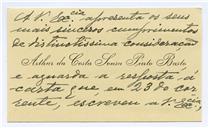 A V. Ex.cia apresenta os seus
mais sinceros cumprimentos
de distinctissima consideração
Arthur da Costa Sousa Pinto Basto
e aguarda a resposta á
carta que em 23 do cor-
rente, escreveu a V. Ex.cia